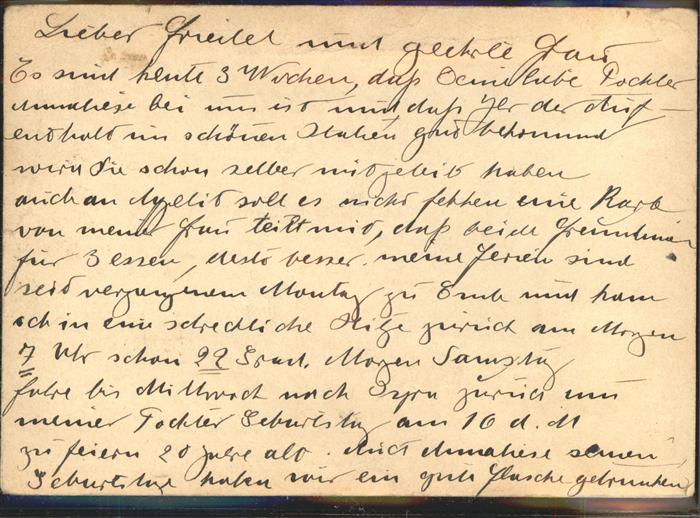 Lieber Friedel und geehrte Frau
Es sind heute 3 Wochen, daß Deine liebe Tochter
Annaliese bei uns ist und daß Ihr der Auf-
enthalt im schönen Italien gut bekommt
wird Sie schon selber mitgeteilt haben
auch an Apetit soll es nicht fehlen eine Karte
von meiner Frau teilt mit, daß beide Freundinnen
für 3 essen, desto besser. meine Ferien sind
seid vergangenem Montag zu Ende und kam
ich in eine schreckliche Hitze zurück am Morgen
7 Uhr schon 22 Grad. Morgen Samstag
fahre bis Mittwoch nach zurück um
meiner Tochter Geburtstag am 16 d. M
zu feiern 20 Jahre alt. Auf Annaliese
Geburtstage haben wir ein gute Flasche getrunken